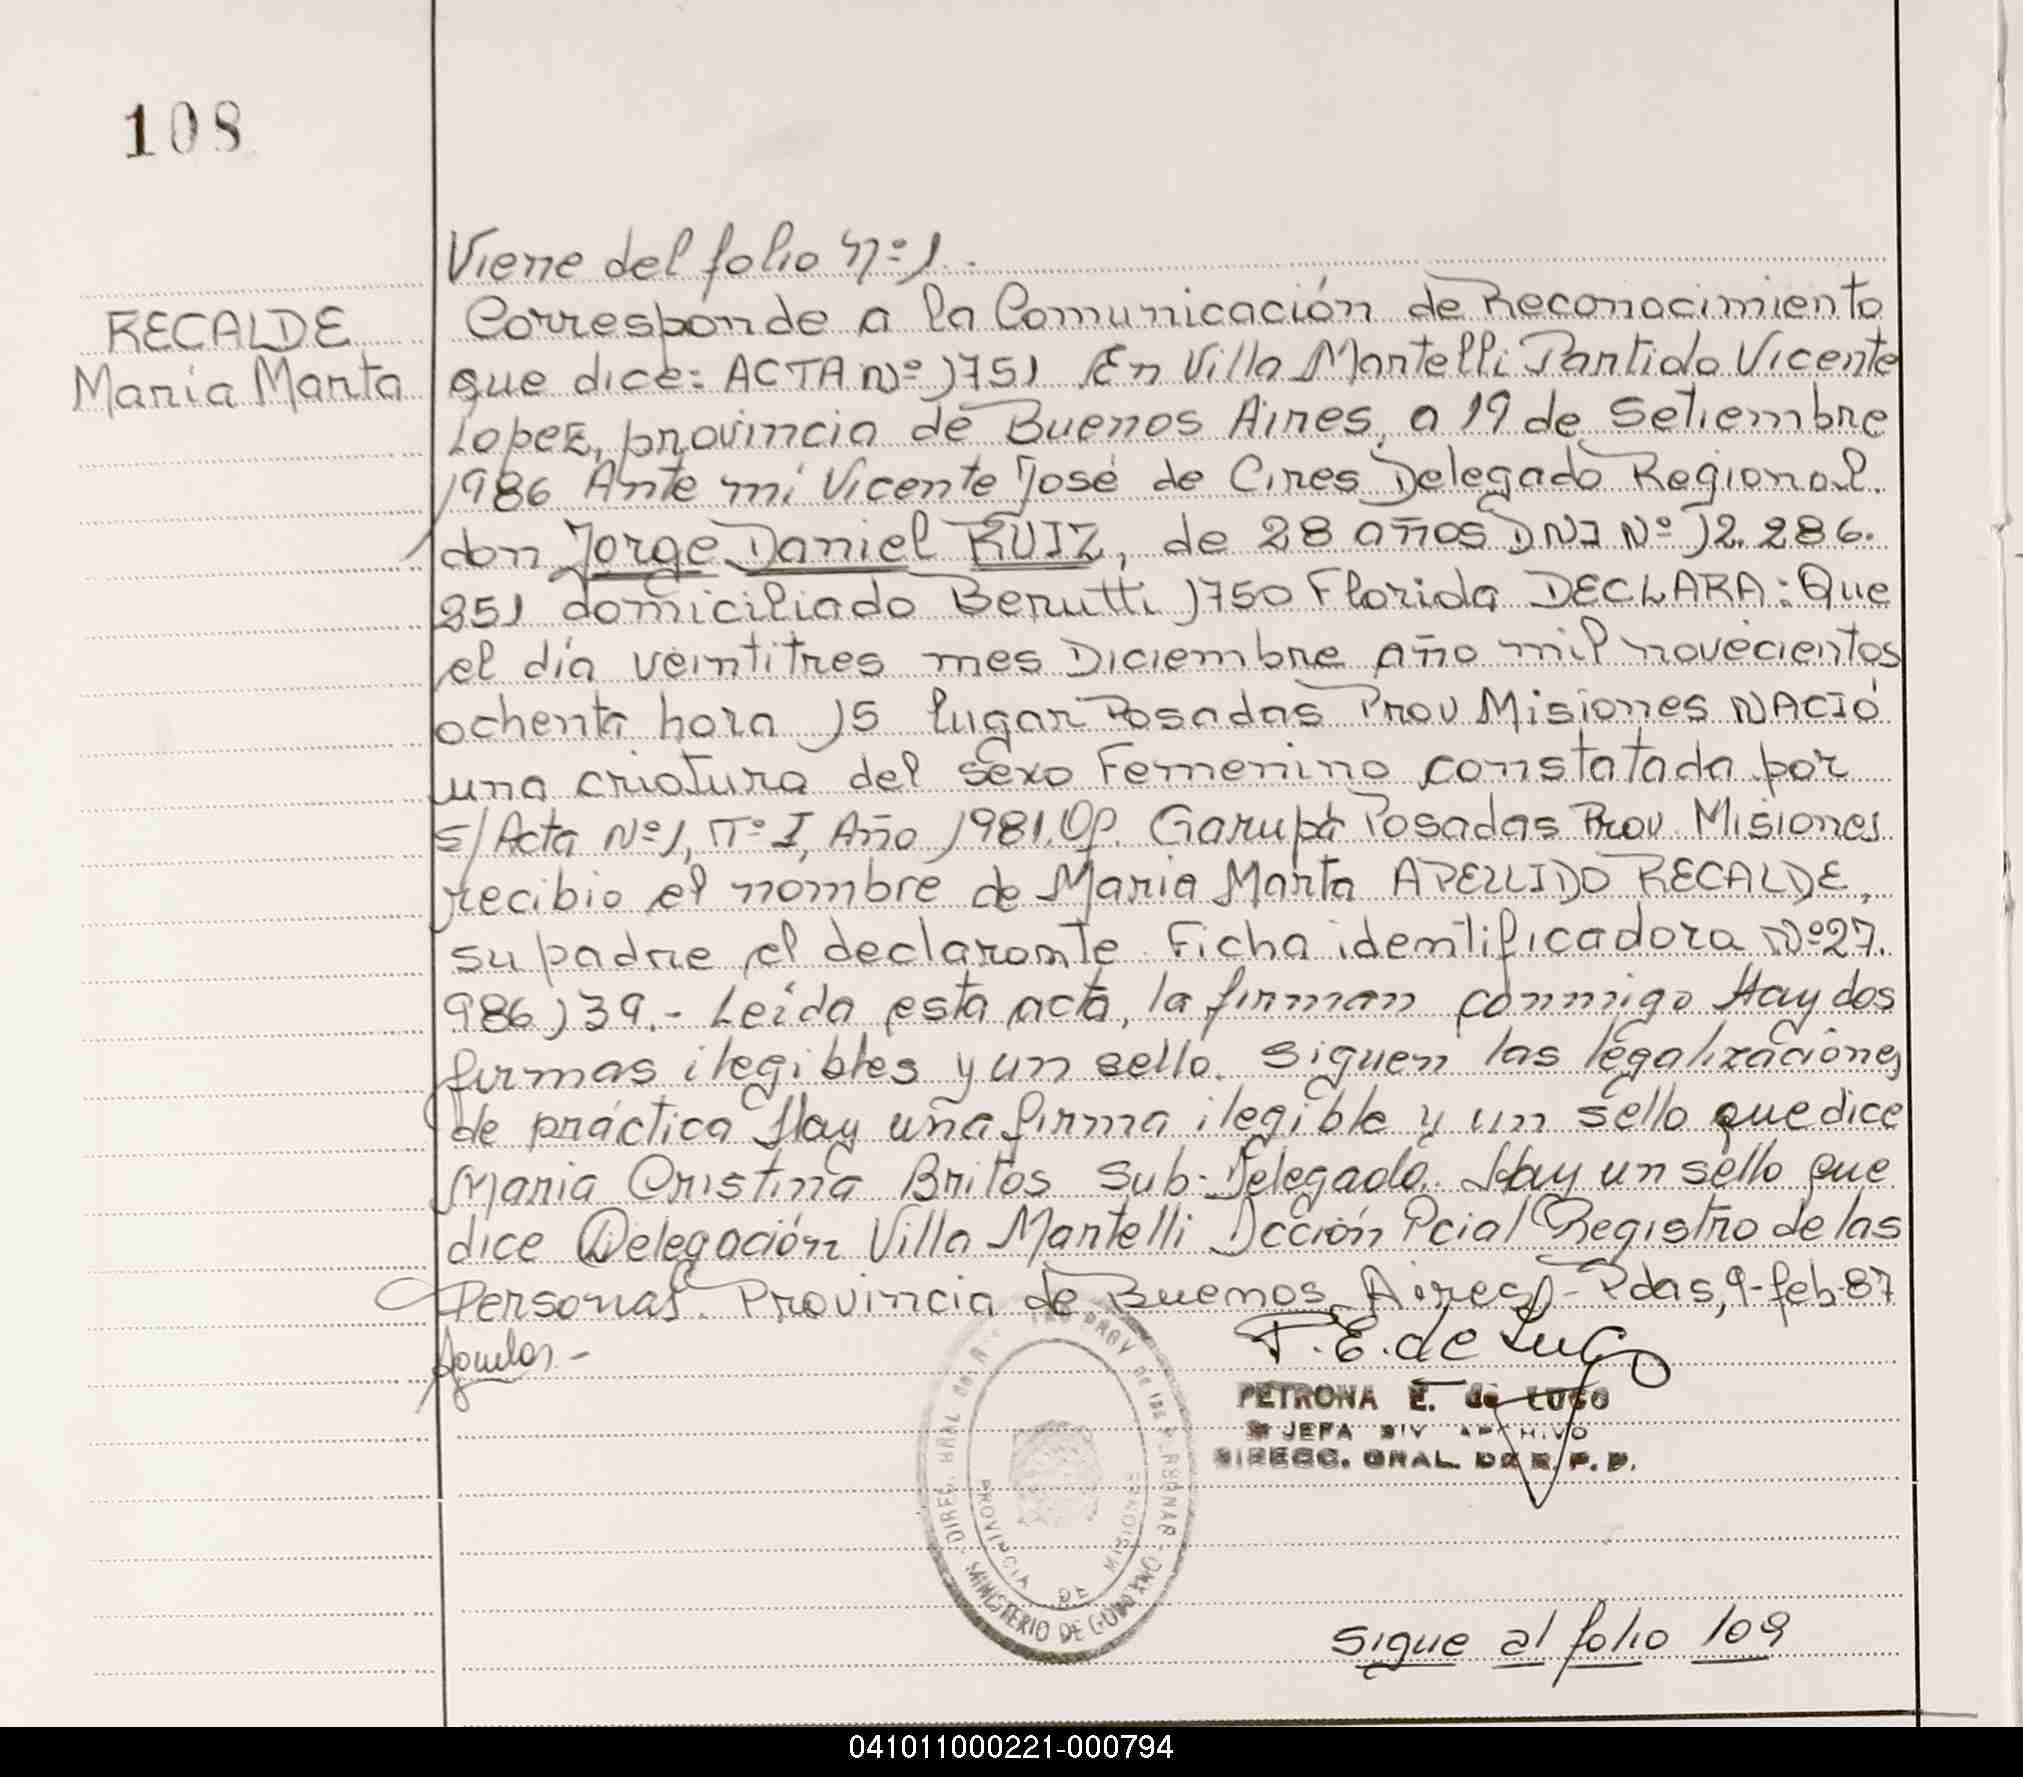 108
Viene del folio Nº 1.
RECALDE
Maria Marta
Corresponde a la Comunicación de Reconocimiento
que dice: ACTA Nº 1751 En Villa Martelli Partido Vicente
Lopez, provincia de Buenos Aires, a 19 de Setiembre
1986 Ante mí Vicente José de Cires Delegado Regional.
don Jorge Daniel RUIZ, de 28 años DNI Nº 12.286.
851 domiciliado Berutti 1750 Florida DECLARA: Que
el día veintitres mes Diciembre año mil novecientos
ochenta hora 15 lugar Posadas Prov Misiones NACIÓ
una criatura del sexo Femenino constatada por
s/Acta Nº 1, Tº I, Año 1981. Of. Garupá Posadas Prov. Misiones
recibio el nombre de Maria Marta APELLIDO RECALDE,
su padre el declarante. Ficha identificadora Nº 27.
986139.- Leída esta acta, la firman conmigo Hay dos
firmas ilegibles y un sello. Siguen las legalizaciones
de práctica Hay una firma ilegible y un sello que dice
Maria Cristina Britos Sub-Delegada. Hay un sello que
dice Delegación Villa Martelli Dcción Pcial Registro de las
Personas. Provincia de Buenos Aires.- Pdas, 9-feb-87
P. E. de Lugo
PETRONA E. de LUGO
JEFA DIV ARCHIVO
DIRECC. GRAL DE R. P. P.
PROVINCIA DE MISIONES
MINISTERIO DE GOBIERNO
Sigue al folio 109
041011000221-000794